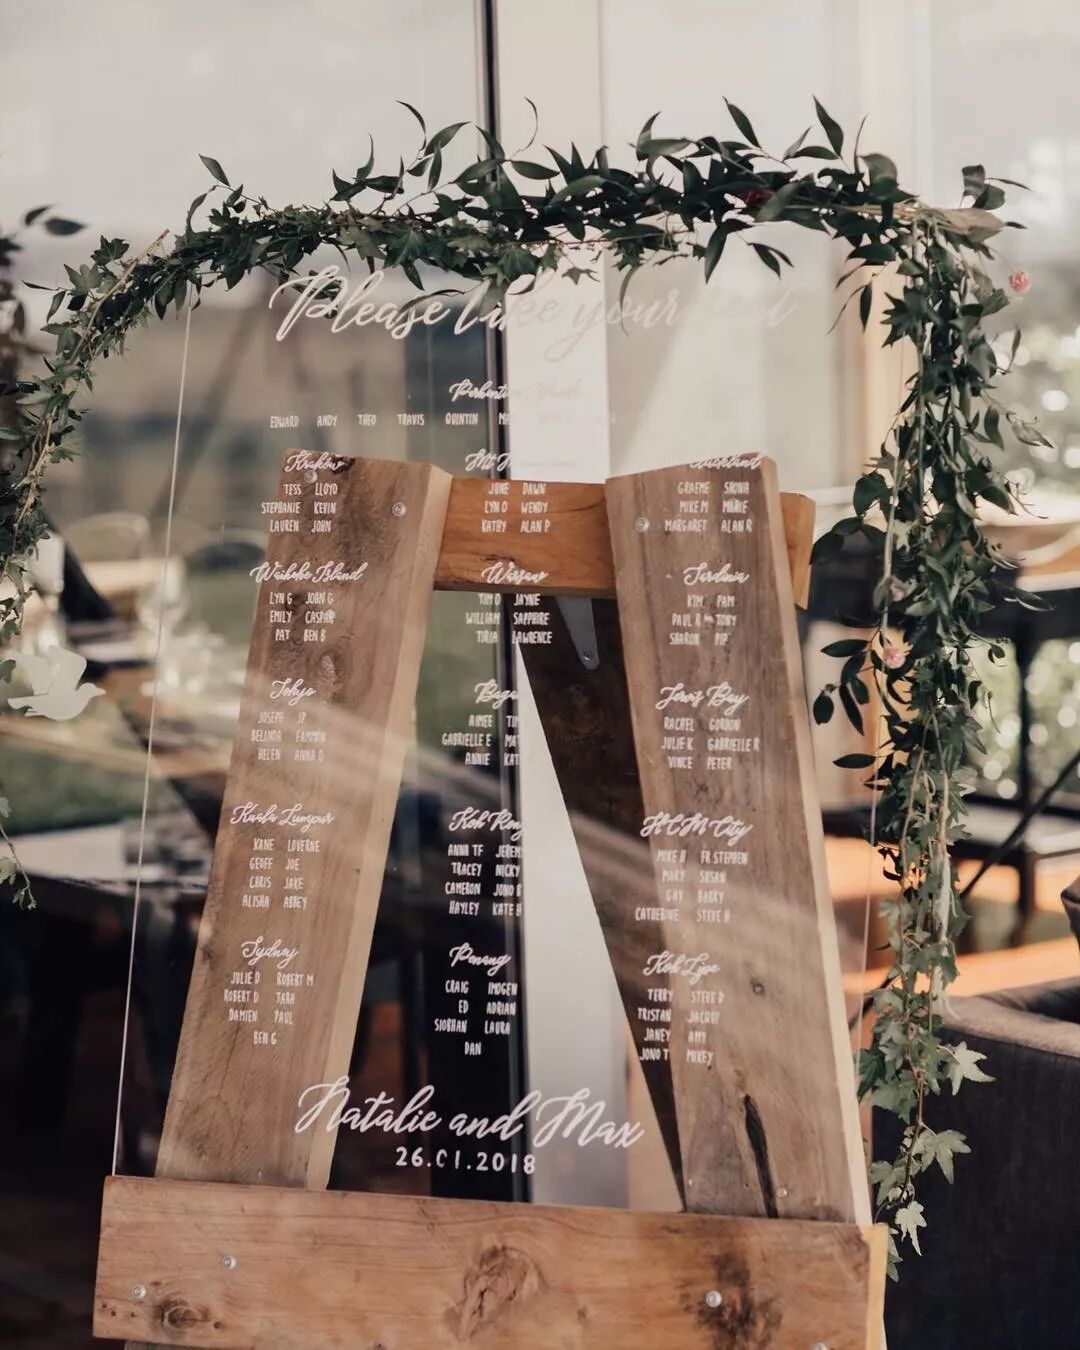 Please take your seat
Perhentian Island
EDWARD ANDY THEO TRAVIS QUINTIN
Krakow
TESS LLOYD
STEPHANIE KEVIN
LAUREN JOHN
Waiheke Island
LYN G JOHN G
EMILY CASPAR
PAT BEN B
Tokyo
JOSEPH JP
BELINDA FAMMON
HELEN ANNA D
Kuala Lumpur
KANE LOVERNE
GEOFF JOE
CHRIS JAKE
ALISHA ABBEY
Sydney
JULIE D ROBERT M
ROBERT D TARA
DAMIEN PAUL
BEN G
Mt
JUNE DAWN
LYN O WENDY
KATHY ALAN P
Warsaw
TIM O JAYNE
WILLIAM SAPPHIRE
TORIA LAWRENCE
AIMEE
GABRIELLE E
ANNIE
Koh Rong
ANNA TF
TRACEY NICKY
CAMERON JONO
HAYLEY KATE H
Penang
CRAIG IMOGEN
ED ADRIAN
SIOBHAN LAURA
DAN
Auckland
GRAEME SHONA
MIKE M MARIE
MARGARET ALAN R
Sardinia
KIM PAM
PAUL R TONY
SHARON PIP
Jervis Bay
RACHEL GORDON
JULIE K GABRIELLE R
VINCE PETER
HCM City
MIKE H FR STEPHEN
MARY SUSAN
GAY BARRY
CATHERINE STEVE H
Koh Lipe
TERRY STEVE D
TRISTAN JACQUI
JANEY AMY
JONO T MIKEY
Natalie and Max
26.01.2018